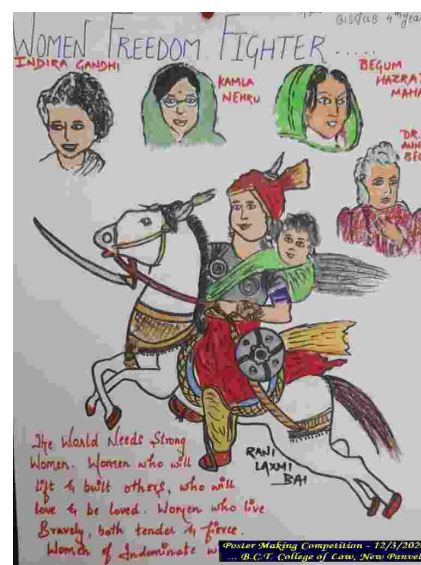 BLS/LLB 4th year
WOMEN FREEDOM FIGHTER.....
INDIRA GANDHI
KAMLA
NEHRU
BEGUM
HAZRAT
MAHA
DR.
BE
RANI
LAXMI
BAI
The World Needs Strong
Women. Women who will
lift & built others, who will
love & be loved. Women who live
Bravely, both tender & fierce.
Women of Indominate w
Poster Making Competition - 12/3/202
... B.C.T. College of Law, New Panvel